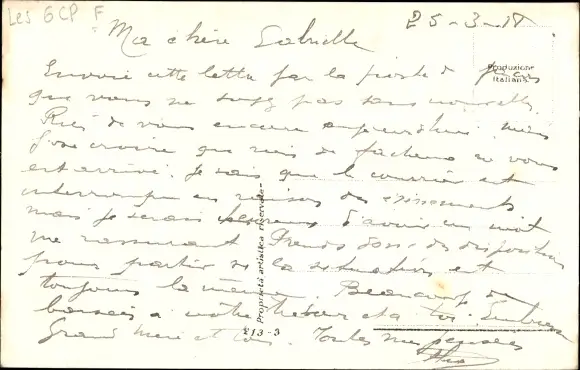 Les GCP F
25-3-18
Ma chère Gabrielle
Envoie cette lettre par la poste
Produzione
italiana
que vous ne soyez pas sans nouvelles.
Rien de vous encore aujourd'hui mais
j'ose croire que rien de fâcheux ne vous
est arrivé. Je sais que le courrier est
interrompu en raison des événements
mais je serais heureux d'avoir un mot
me rassurant. Prends donc des dispositions
pour partir si la situation est
toujours la même. Beaucoup de
baisers à notre et à toi. Embrasse
Grand'mère et tous. Toutes mes pensées
Proprietà artistica riservata
213-3